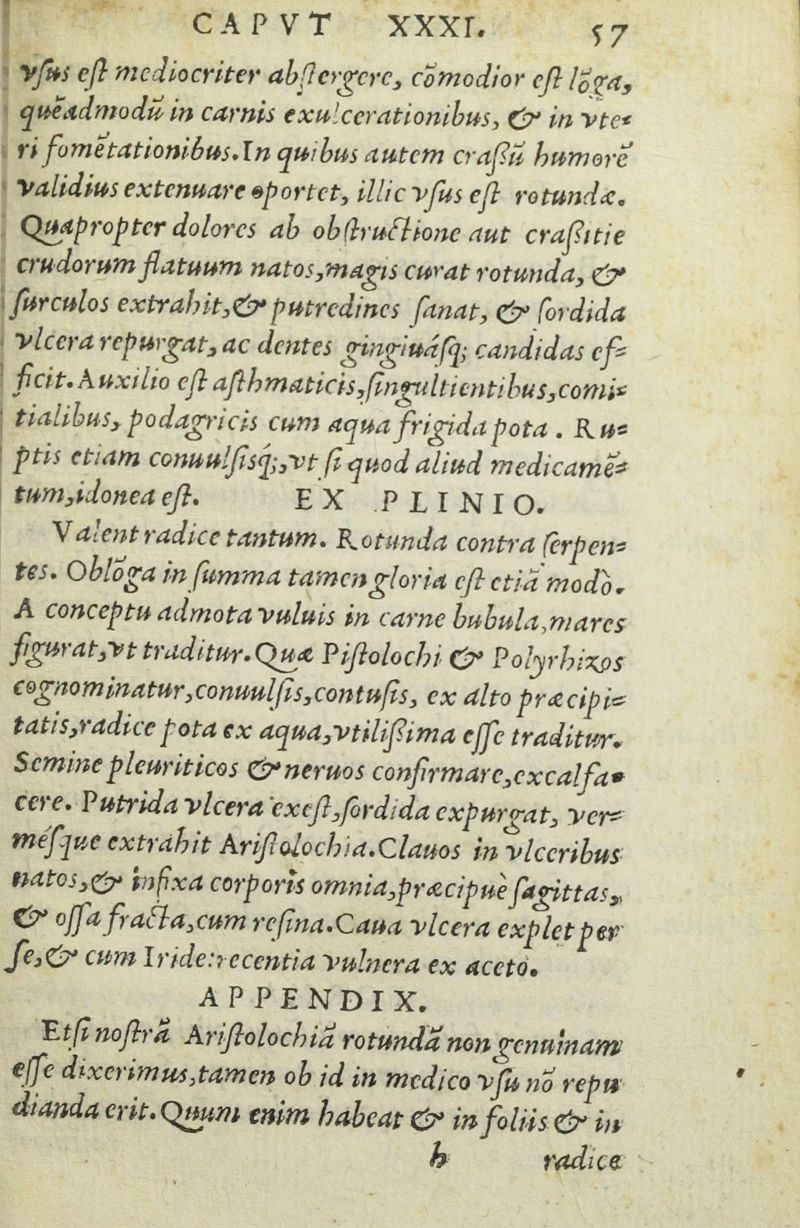 CAPVT XXXI. 57
vſus eſt mediocriter abſtergere, cõmodior eſt lõga,
quẽadmodũ in carnis exulcerationibus, & in vte-
ri fomẽtationibus. In quibus autem craſſũ humorẽ
validius extenuare oportet, illic vſus eſt rotundæ.
Quapropter dolores ab obſtructione aut craſſitie
crudorum flatuum natos, magis curat rotunda, &
ſurculos extrahit, & putredines ſanat, & ſordida
vlcera repurgat, ac dentes gingiuáſq; candidas ef-
ficit. Auxilio eſt aſthmaticis, ſingultientibus, comi-
tialibus, podagricis cum aqua frigida pota. Ru-
ptis etiam conuulſisq́;, vt ſi quod aliud medicamẽ-
tum, idonea eſt. EX PLINIO.
Valent radice tantum. Rotunda contra ſerpen-
tes. Oblõga in ſumma tamen gloria eſt etiã modò.
A conceptu admota vuluis in carne bubula, mares
figurat, vt traditur. Quæ Piſtolochi & Polyrhizos
cognominatur, conuulſis, contuſis, ex alto præcipi-
tatis, radice pota ex aqua, vtiliſſima eſſe traditur.
Semine pleuriticos & neruos confirmare, excalfa-
cere. Putrida vlcera exeſt, ſordida expurgat, ver-
méſque extrahit Ariſtolochia. Clauos in vlceribus
natos, & infixa corporis omnia, præcipuè ſagittas,
& oſſa fracta, cum reſina. Caua vlcera explet per
ſe, & cum Iride: recentia vulnera ex aceto.
APPENDIX.
Etſi noſtrã Ariſtolochiã rotundã non genuinam
eſſe dixerimus, tamen ob id in medico vſu nõ repu
dianda erit. Quum enim habeat & in foliis & in
h radice